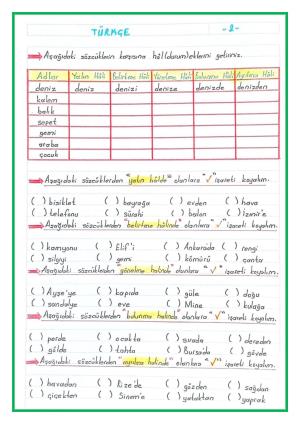 TÜRKÇE -2-
Aşağıdaki sözcüklerin karşısına hâl(durum)eklerini getiriniz.
Adlar Yalın Hâli Belirtme Hâli Yönelme Hâli Bulunma Hâli Ayrılma Hâli
deniz deniz denizi denize denizde denizden
kalem
balık
sepet
gemi
araba
çocuk
Aşağıdaki sözcüklerden "yalın hâlde" olanlara "✓" işareti koyalım.
( ) bisiklet ( ) bayrağa ( ) evden ( ) hava
( ) telefonu ( ) sürahi ( ) balon ( ) İzmir'e
Aşağıdaki sözcüklerden "belirtme halinde" olanlara "✓" işareti koyalım.
( ) kamyonu ( ) Elif'i ( ) Ankarada ( ) rengi
( ) silgiyi ( ) gemi ( ) kömürü ( ) çanta
Aşağıdaki sözcüklerden "yönelme halinde" olanlara "✓" işareti koyalım.
( ) Ayşe'ye ( ) kapıda ( ) güle ( ) dağa
( ) sandalye ( ) eve ( ) Mine ( ) kulağa
Aşağıdaki sözcüklerden "bulunma halinde" olanlara "✓" işareti koyalım.
( ) perde ( ) ocakta ( ) sırada ( ) dereden
( ) gölde ( ) tahta ( ) Bursada ( ) gövde
Aşağıdaki sözcüklerden "ayrılma halinde" olanlara "✓" işareti koyalım.
( ) havadan ( ) Rize'de ( ) gözden ( ) sağdan
( ) çiçekten ( ) Sinem'e ( ) yataktan ( ) yaprak